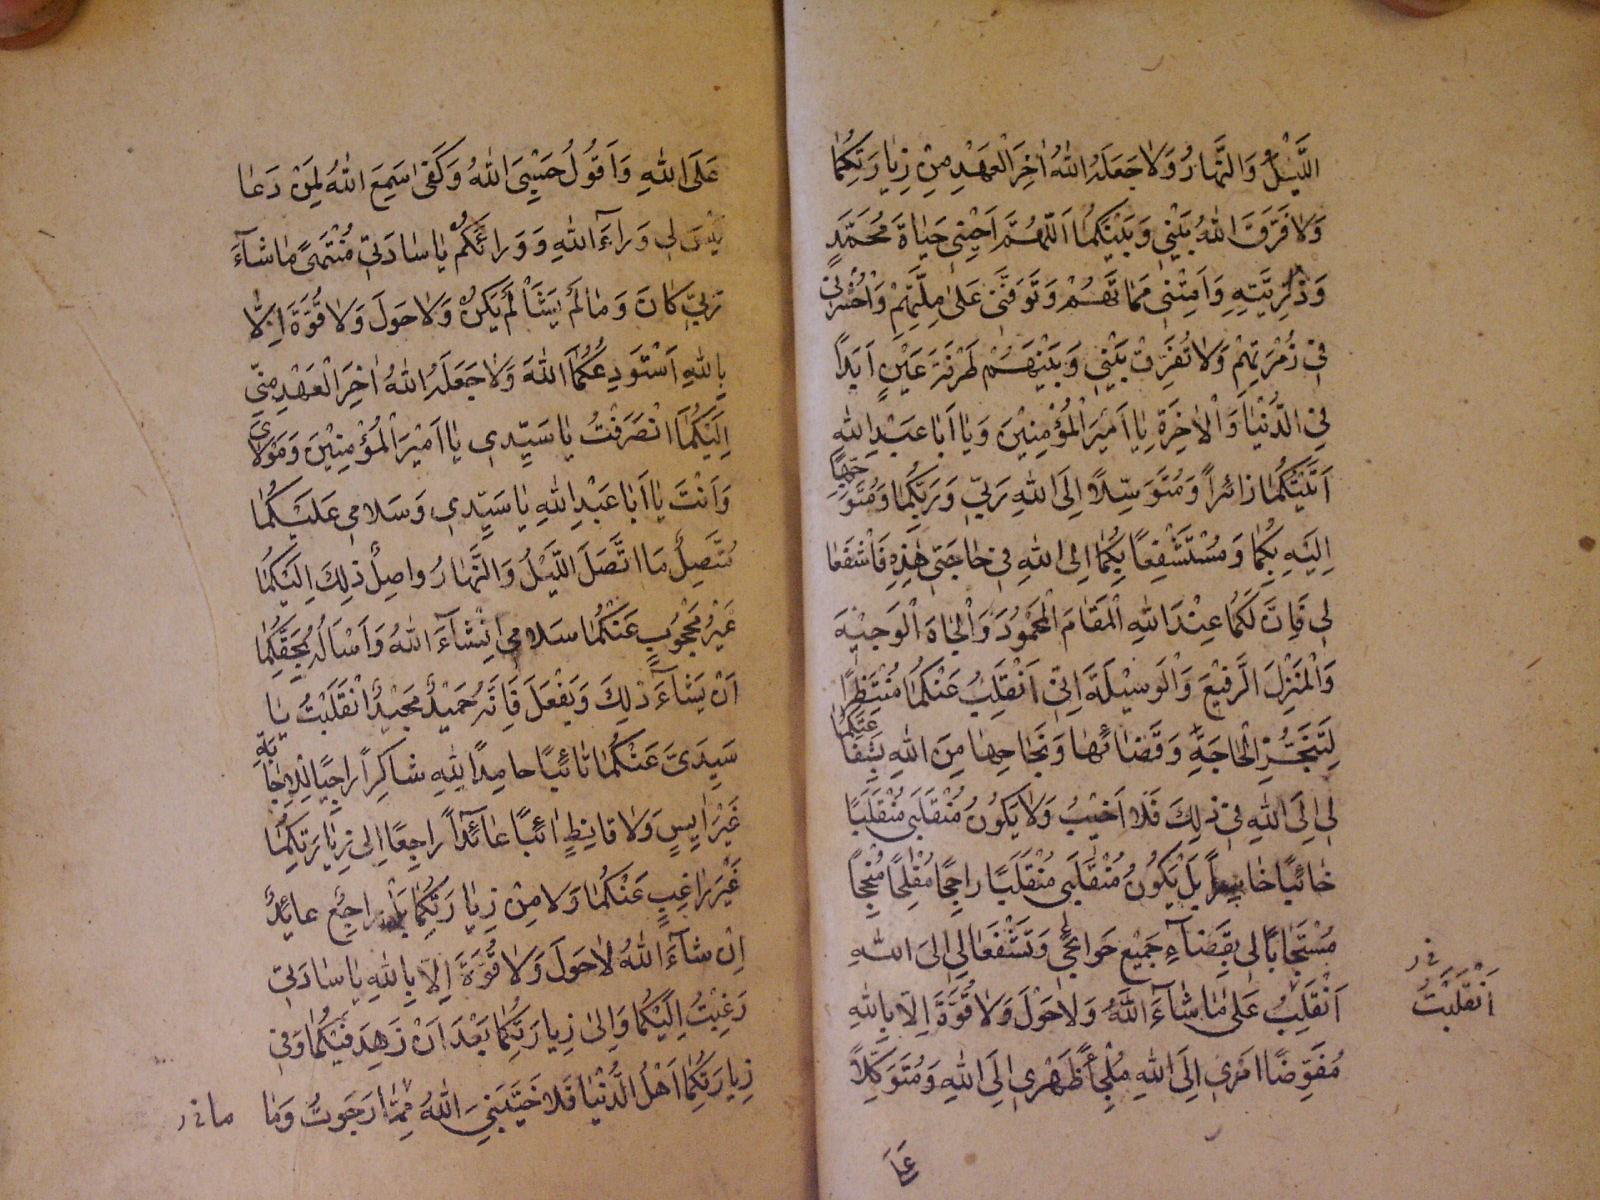 اللَّيْلُ وَالنَّهَارُ وَلَا جَعَلَهُ اللهُ اٰخِرَ الْعَهْدِ مِنْ زِيَارَتِكُمَا
وَلَا فَرَّقَ اللهُ بَيْنِي وَبَيْنَكُمَا اَللّٰهُمَّ اَحْيِنِي حَيَاةَ مُحَمَّدٍ
وَذُرِّيَّتِهِ وَاَمِتْنِي مَمَاتَهُمْ وَتَوَفَّنِي عَلَى مِلَّتِهِمْ وَاحْشُرْنِي
فِي زُمْرَتِهِمْ وَلَا تُفَرِّقْ بَيْنِي وَبَيْنَهُمْ طَرْفَةَ عَيْنٍ اَبَدًا
فِي الدُّنْيَا وَالْاٰخِرَةِ يَا اَمِيْرَ الْمُؤْمِنِيْنَ وَيَا اَبَا عَبْدِ اللهِ
اَتَيْتُكُمَا زَائِرًا وَمُتَوَسِّلًا اِلَى اللهِ رَبِّي وَرَبِّكُمَا وَمُتَوَجِّهًا
اِلَيْهِ بِكُمَا وَمُسْتَشْفِعًا بِكُمَا اِلَى اللهِ فِي حَاجَتِي هٰذِهِ فَاشْفَعَا
لِي فَاِنَّ لَكُمَا عِنْدَ اللهِ الْمَقَامَ الْمَحْمُوْدَ وَالْجَاهَ الْوَجِيْهَ
وَالْمَنْزِلَ الرَّفِيْعَ وَالْوَسِيْلَةَ اِنِّي اَنْقَلِبُ عَنْكُمَا مُنْتَظِرًا
لِتَنَجُّزِ الْحَاجَةِ وَقَضَائِهَا وَنَجَاحِهَا مِنَ اللهِ بِشَفَاعَتِكُمَا
لِي اِلَى اللهِ فِي ذٰلِكَ فَلَا اَخِيْبُ وَلَا يَكُوْنُ مُنْقَلَبِي مُنْقَلَبًا
خَائِبًا خَاسِرًا بَلْ يَكُوْنُ مُنْقَلَبِي مُنْقَلَبًا رَاجِحًا مُفْلِحًا مُنْجِحًا
مُسْتَجَابًا لِي بِقَضَاءِ جَمِيْعِ حَوَائِجِي وَتَشْفَعَا لِي اِلَى اللهِ
اَنْقَلِبُ عَلَى مَا شَاءَ اللهُ وَلَا حَوْلَ وَلَا قُوَّةَ اِلَّا بِاللهِ
اَنْقَلَبْتُ
مُفَوِّضًا اَمْرِي اِلَى اللهِ مُلْجِأً ظَهْرِي اِلَى اللهِ وَمُتَوَكِّلًا
عَلَى
عَلَى اللهِ وَاَقُوْلُ حَسْبِيَ اللهُ وَكَفَى سَمِعَ اللهُ لِمَنْ دَعَا
لَيْسَ لِي وَرَاءَ اللهِ وَوَرَائَكُمْ يَا سَادَتِي مُنْتَهًى مَا شَاءَ
رَبِّي كَانَ وَمَا لَمْ يَشَأْ لَمْ يَكُنْ وَلَا حَوْلَ وَلَا قُوَّةَ اِلَّا
بِاللهِ اَسْتَوْدِعُكُمَا اللهَ وَلَا جَعَلَهُ اللهُ اٰخِرَ الْعَهْدِ مِنِّي
اِلَيْكُمَا انْصَرَفْتُ يَا سَيِّدِي يَا اَمِيْرَ الْمُؤْمِنِيْنَ وَمَوْلَايَ
وَاَنْتَ يَا اَبَا عَبْدِ اللهِ يَا سَيِّدِي وَسَلَامِي عَلَيْكُمَا
مُتَّصِلٌ مَا اتَّصَلَ اللَّيْلُ وَالنَّهَارُ وَاصِلٌ ذٰلِكَ اِلَيْكُمَا
غَيْرُ مَحْجُوْبٍ عَنْكُمَا سَلَامِي اِنْشَاءَ اللهُ وَاَسْأَلُهُ بِحَقِّكُمَا
اَنْ يَشَاءَ ذٰلِكَ وَيَفْعَلَ فَاِنَّهُ حَمِيْدٌ مَجِيْدٌ انْقَلَبْتُ يَا
سَيِّدَيَّ عَنْكُمَا تَائِبًا حَامِدًا لِلّٰهِ شَاكِرًا رَاجِيًا لِلْاِجَابَةِ
غَيْرَ اٰيِسٍ وَلَا قَانِطٍ اٰئِبًا عَائِدًا رَاجِعًا اِلَى زِيَارَتِكُمَا
غَيْرَ رَاغِبٍ عَنْكُمَا وَلَا مِنْ زِيَارَتِكُمَا بَلْ رَاجِعٌ عَائِدٌ
اِنْ شَاءَ اللهُ لَا حَوْلَ وَلَا قُوَّةَ اِلَّا بِاللهِ يَا سَادَتِي
رَغِبْتُ اِلَيْكُمَا وَاِلَى زِيَارَتِكُمَا بَعْدَ اَنْ زَهِدَ فِيْكُمَا وَفِي
زِيَارَتِكُمَا اَهْلُ الدُّنْيَا فَلَا خَيَّبَنِيَ اللهُ مِمَّا رَجَوْتُ وَمَا